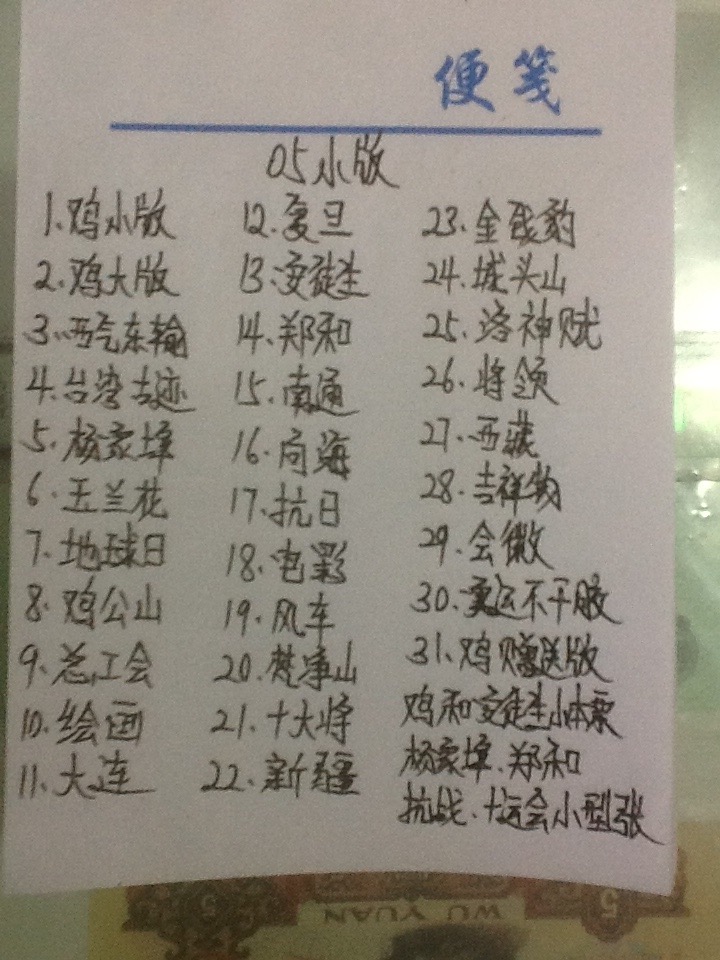 便笺
05小版
1.鸡小版
2.鸡大版
3.西气东输
4.台湾古迹
5.杨家埠
6.玉兰花
7.地球日
8.鸡公山
9.总工会
10.绘画
11.大连
12.复旦
13.安徒生
14.郑和
15.南通
16.向海
17.抗日
18.电影
19.风车
20.梵净山
21.十大将
22.新疆
23.金钱豹
24.城头山
25.洛神赋
26.将领
27.西藏
28.吉祥物
29.会徽
30.奥运不干胶
31.鸡赠送版
鸡和安徒生小本票
杨家埠.郑和
抗战.十运会小型张
WU YUAN
5
5